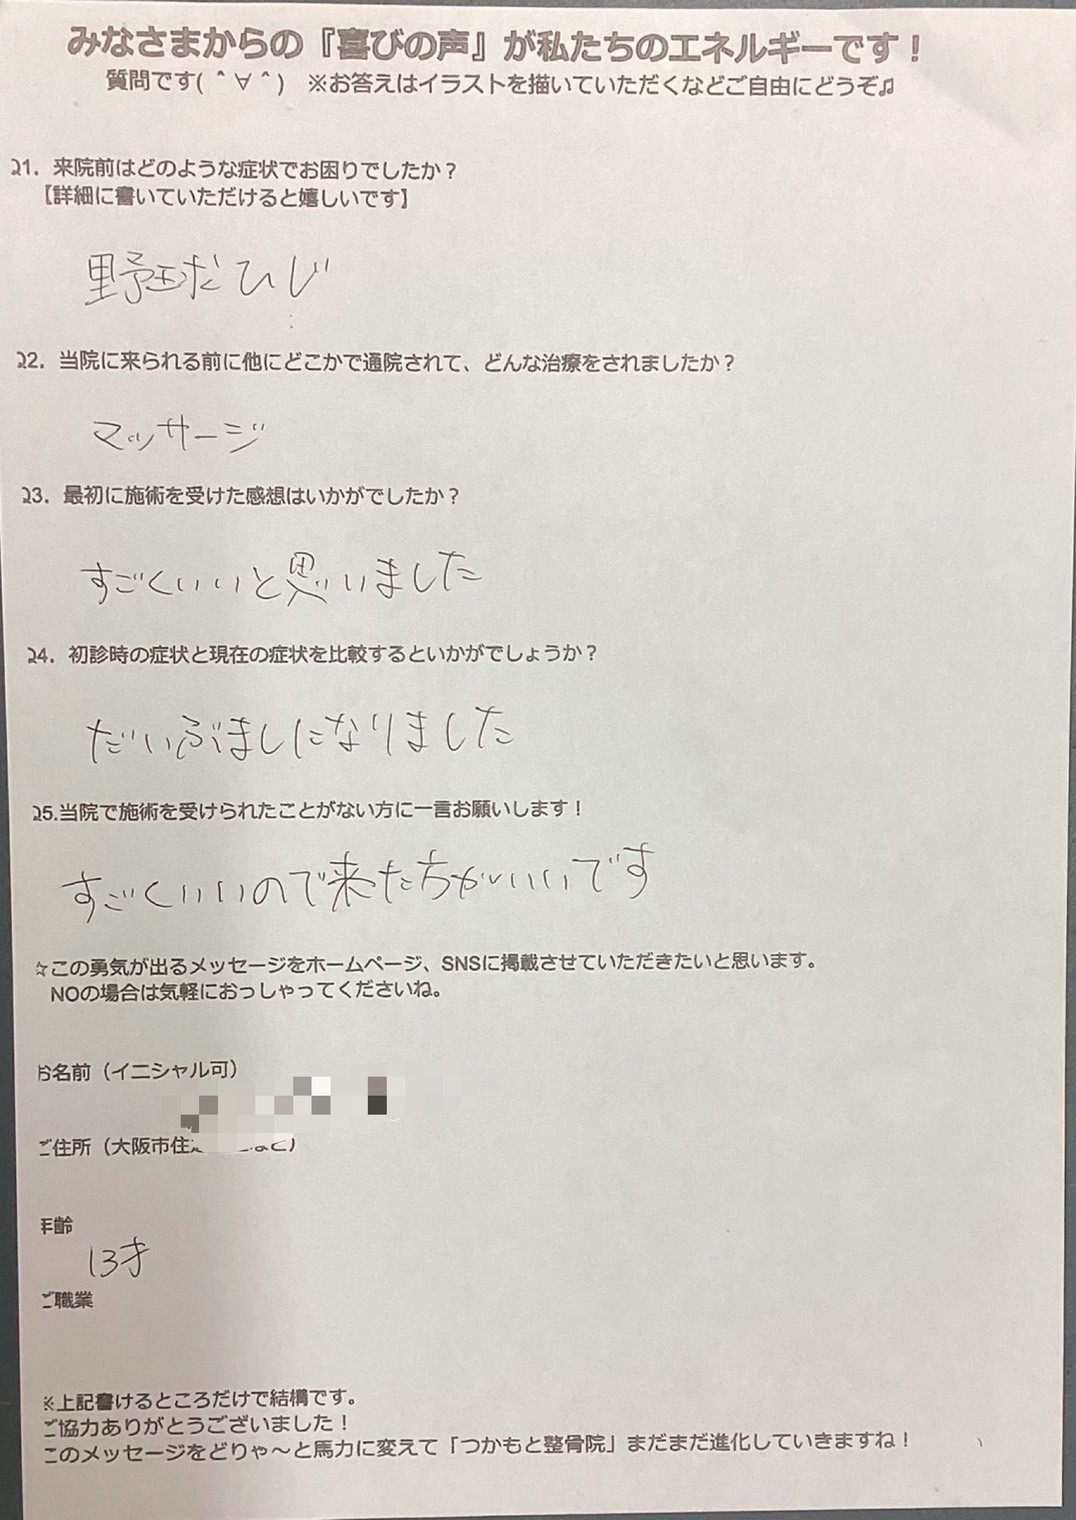 みなさまからの『喜びの声』が私たちのエネルギーです！
質問です( ＾∀＾)　※お答えはイラストを描いていただくなどご自由にどうぞ♫
Q1. 来院前はどのような症状でお困りでしたか？
【詳細に書いていただけると嬉しいです】
野球ひじ
Q2. 当院に来られる前に他にどこかで通院されて、どんな治療をされましたか？
マッサージ
Q3. 最初に施術を受けた感想はいかがでしたか？
すごくいいと思いました
Q4. 初診時の症状と現在の症状を比較するといかがでしょうか？
だいぶましになりました
Q5.当院で施術を受けられたことがない方に一言お願いします！
すごくいいので来た方がいいです
☆この勇気が出るメッセージをホームページ、SNSに掲載させていただきたいと思います。
NOの場合は気軽におっしゃってくださいね。
お名前（イニシャル可）
ご住所（大阪市住
年齢
13才
ご職業
※上記書けるところだけで結構です。
ご協力ありがとうございました！
このメッセージをどりゃ〜と馬力に変えて「つかもと整骨院」まだまだ進化していきますね！